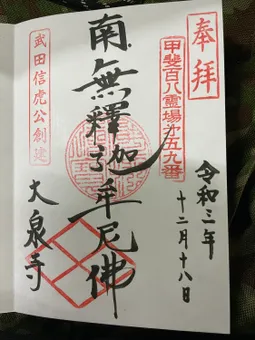 奉拝
甲斐百八霊場才五九番
令和三年
十二月十八日
南無釋迦牟尼佛
武田信虎公創建
大泉寺